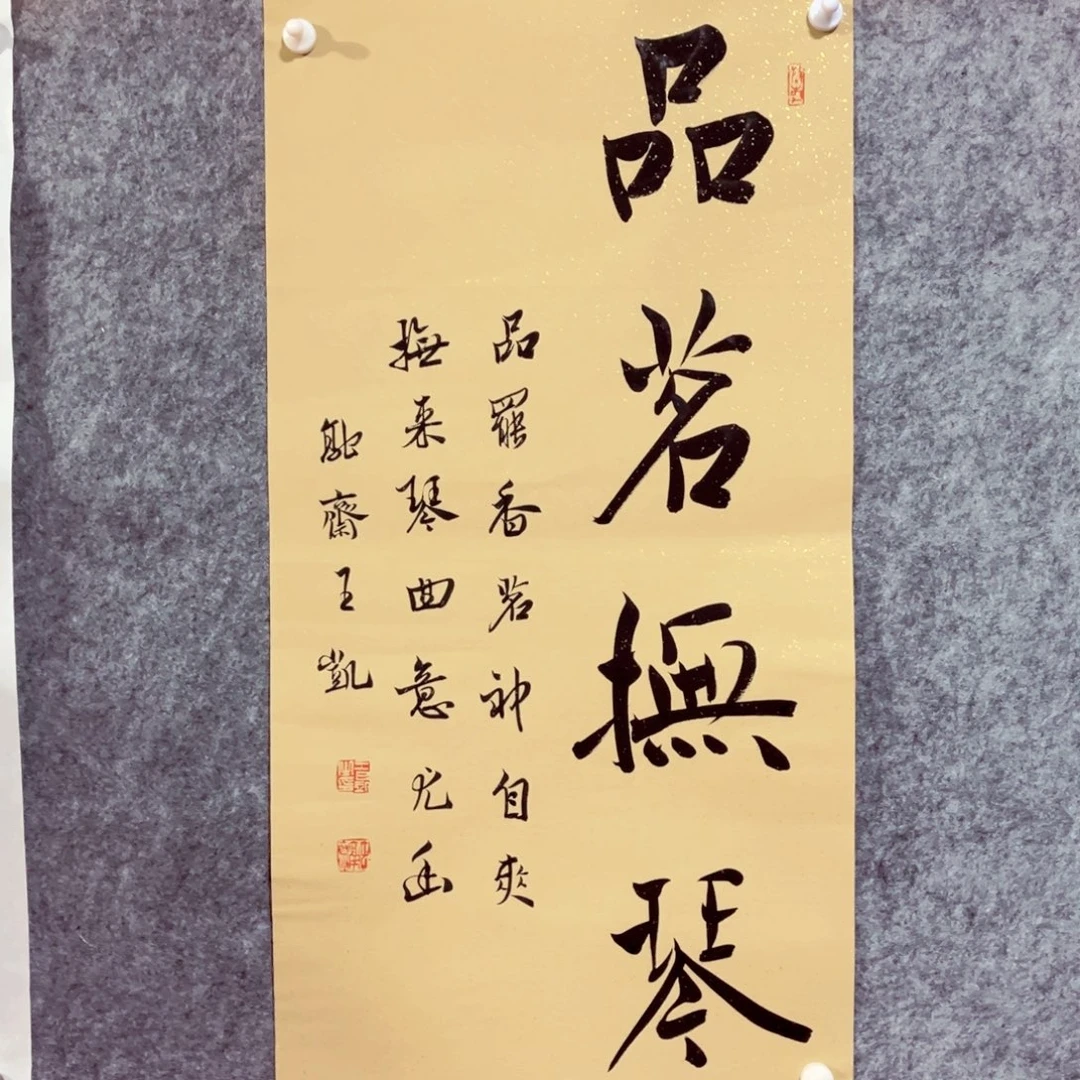 品茗撫琴
品罷香茗神自爽
撫來琴曲意尤幽
齋王凱